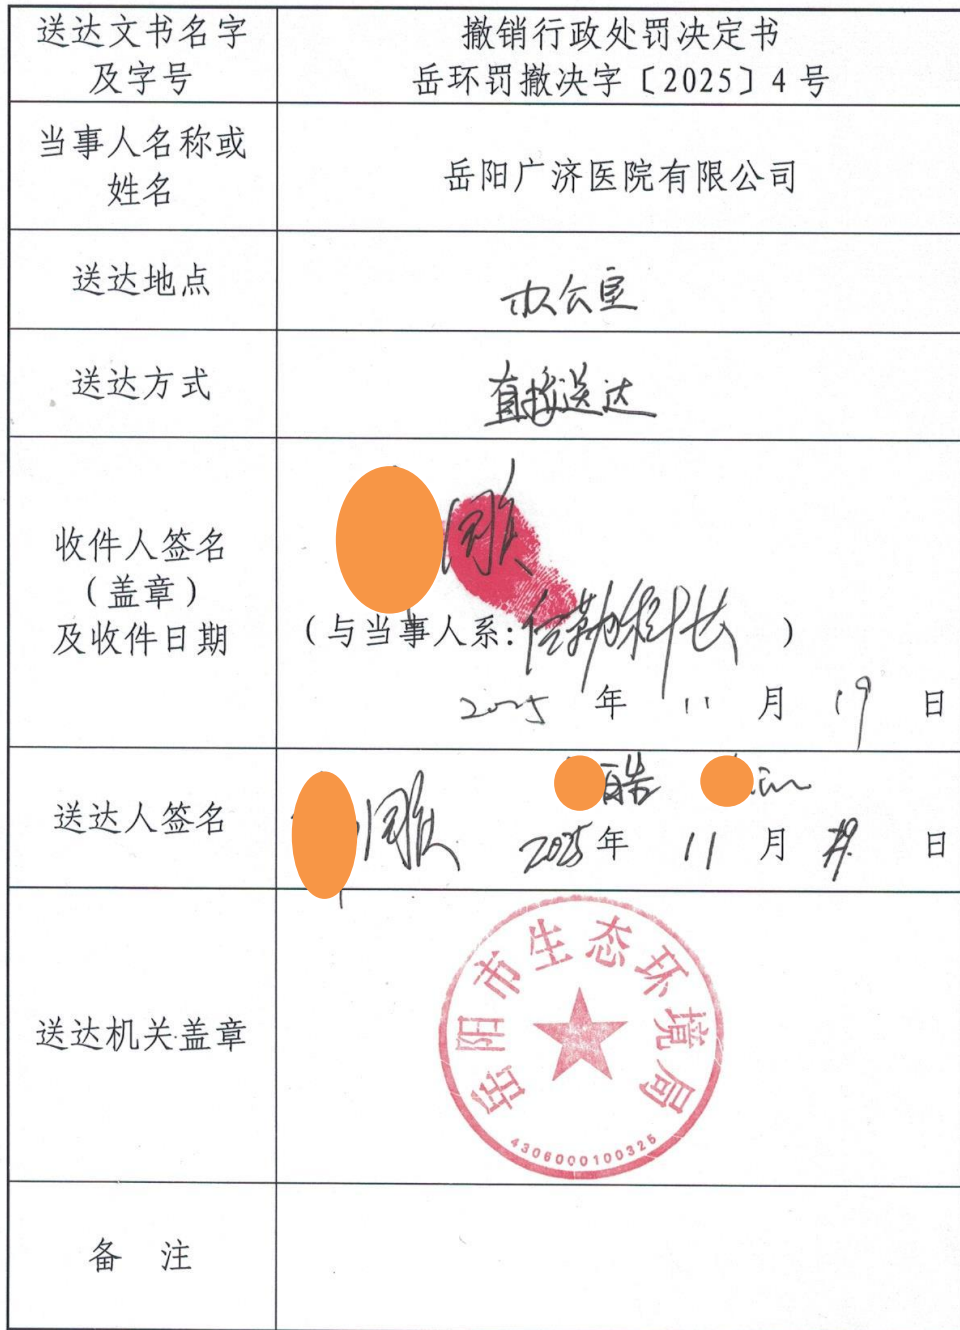 送达文书名字
及字号
撤销行政处罚决定书
岳环罚撤决字〔2025〕4号
当事人名称或
姓名
岳阳广济医院有限公司
送达地点
办公室
送达方式
直接送达
收件人签名
（盖章）
及收件日期
（与当事人系:后勤科长）
2025 年 11 月 19 日
送达人签名
2025年 11 月 日
送达机关盖章
岳阳市生态环境局
4306000100325
备 注